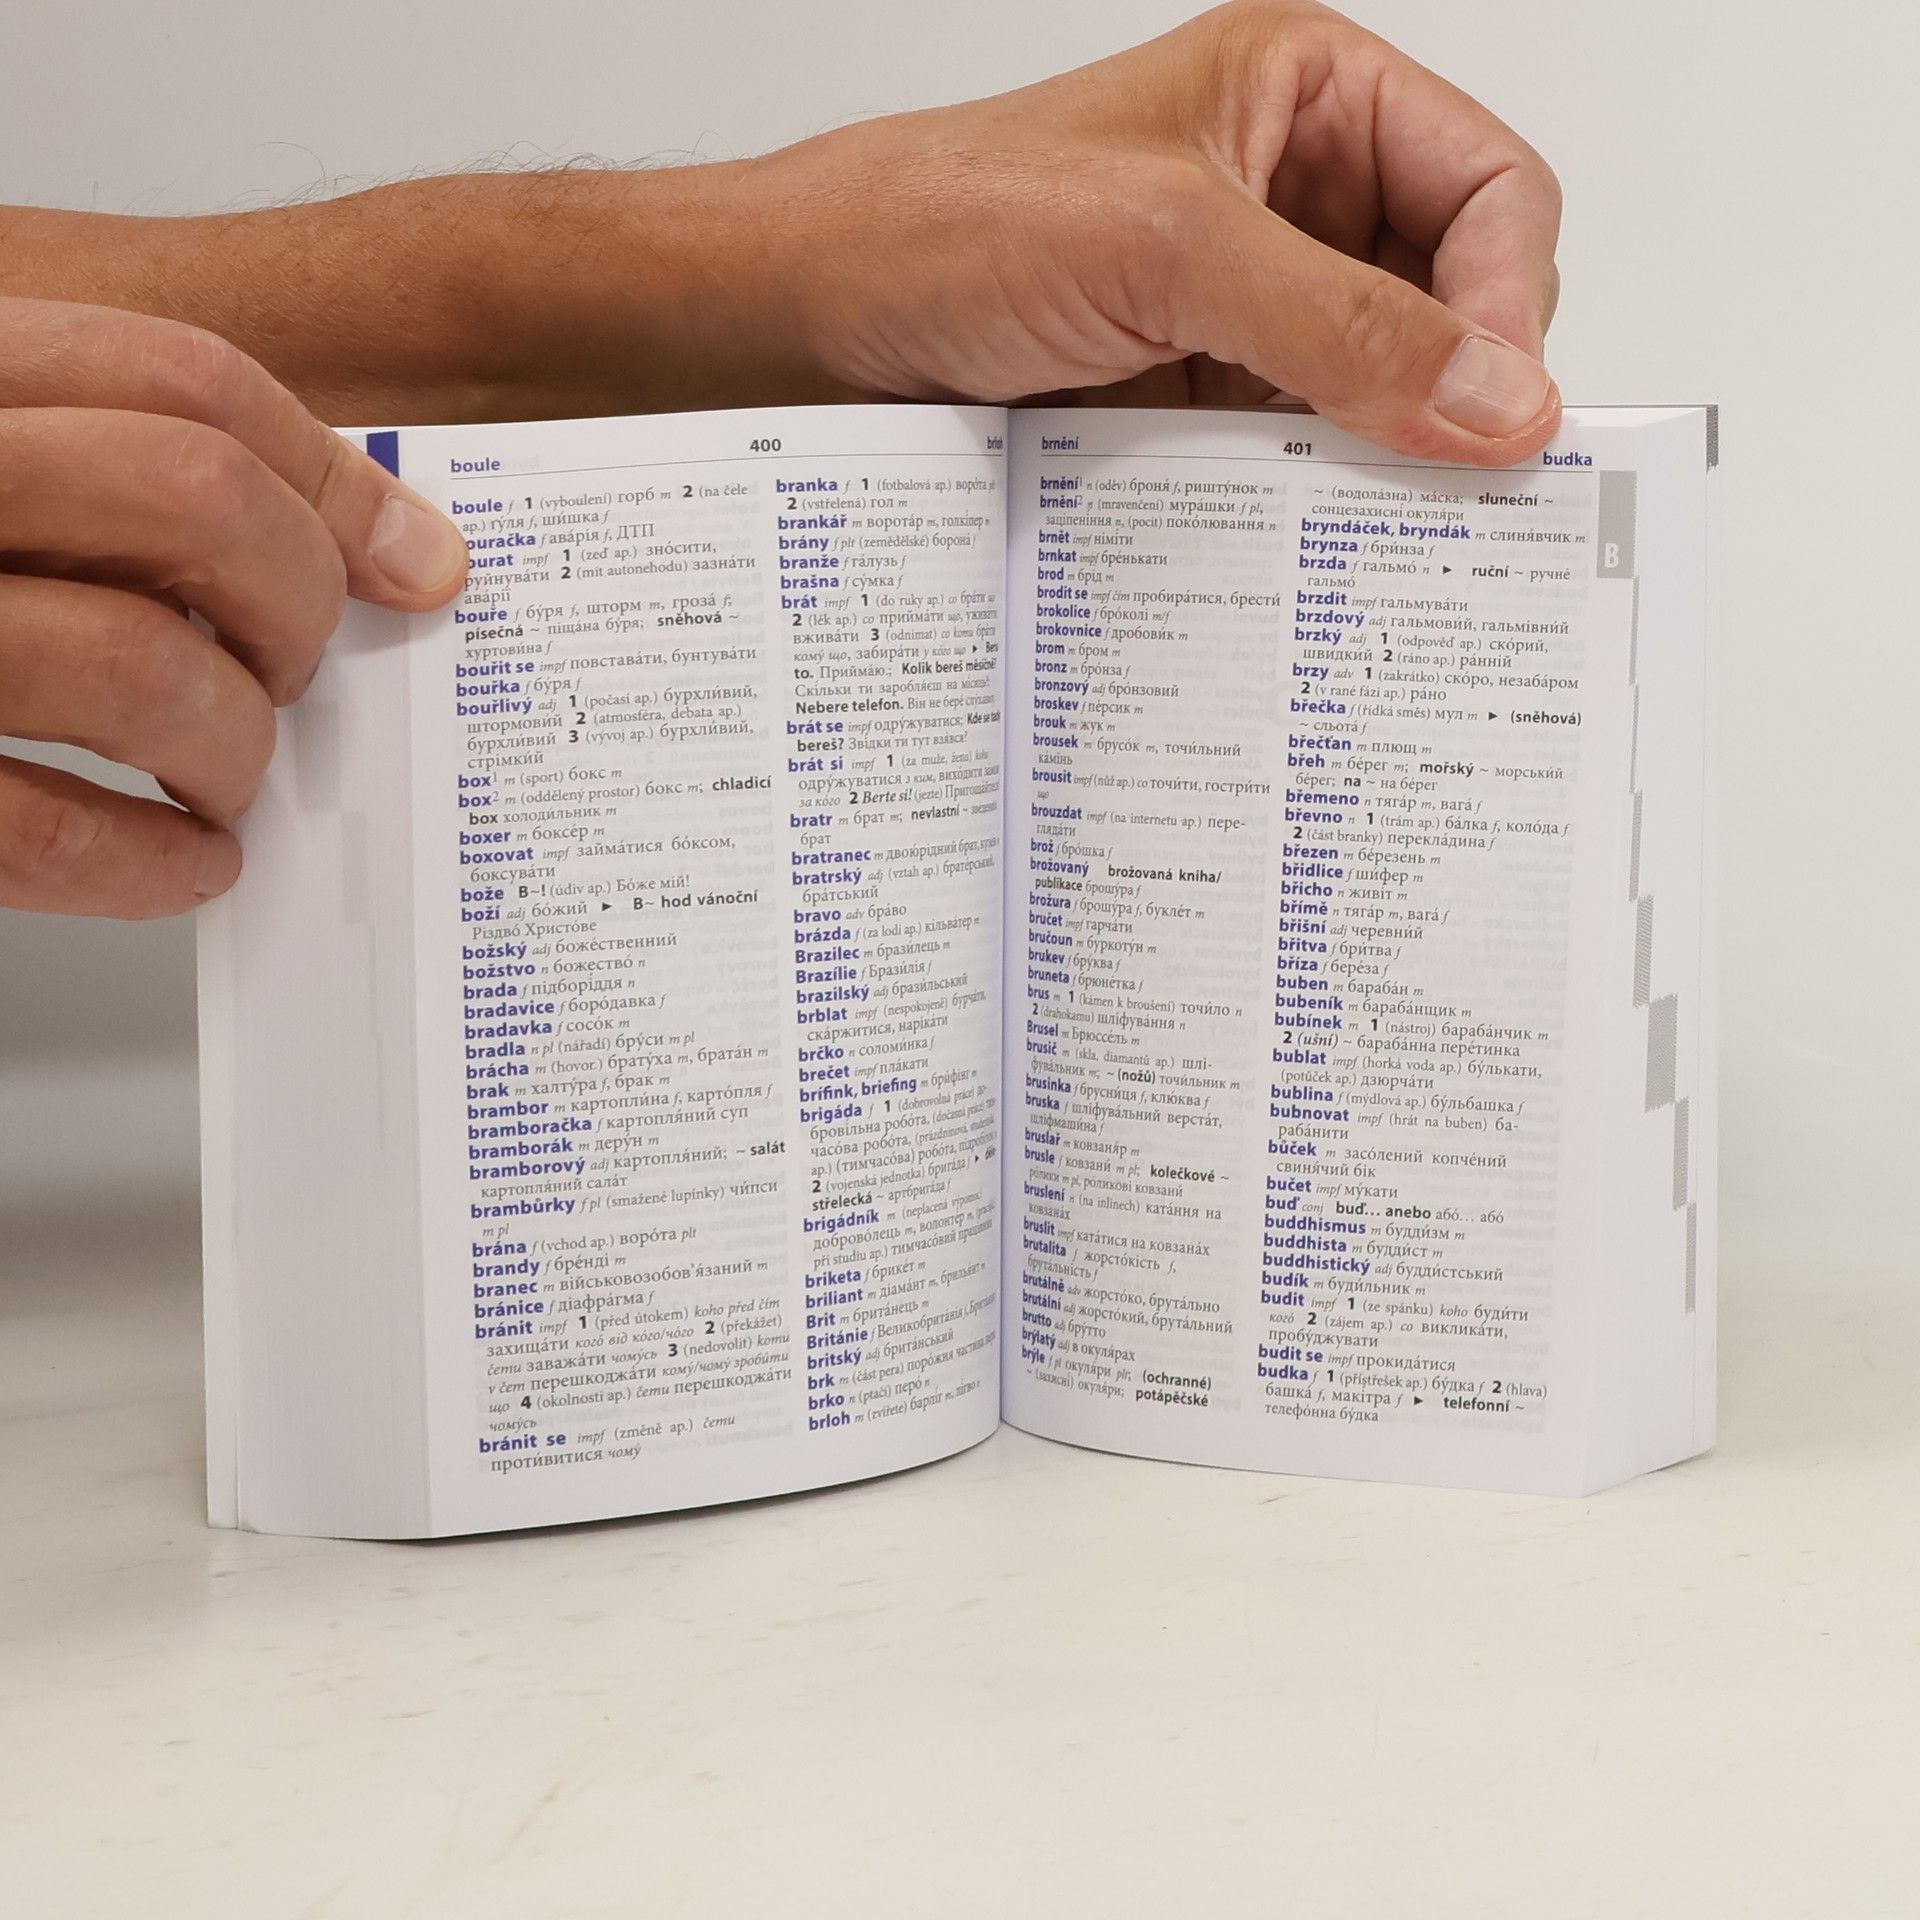 boule
400
boule f 1 (vyboulení) горб m 2 (na čele
ap.) ґу́ля f, ши́шка f
ouračka f ава́рія f, ДТП
ourat impf 1 (zeď ap.) зно́сити,
руйнува́ти 2 (mít autonehodu) зазна́ти
ава́рії
bouře f бу́ря f, шторм m, гроза́ f;
písečná ~ піща́на бу́ря; sněhová ~
хуртови́на f
bouřit se impf повстава́ти, бунтува́ти
bouřka f бу́ря f
bouřlivý adj 1 (počasí ap.) бурхли́вий,
штормови́й 2 (atmosféra, debata ap.)
бурхли́вий 3 (vývoj ap.) бурхли́вий,
стрімки́й
box¹ m (sport) бокс m
box² m (oddělený prostor) бокс m; chladicí
box холоди́льник m
boxer m боксе́р m
boxovat impf займа́тися бо́ксом,
боксува́ти
bože B~! (údiv ap.) Бо́же мій!
boží adj бо́жий ► B~ hod vánoční
Різдво́ Христо́ве
božský adj боже́ственний
božstvo n божество́ n
brada f підборі́ддя n
bradavice f борода́вка f
bradavka f сосо́к m
bradla n pl (nářadí) бру́си m pl
brácha m (hovor.) брату́ха m, брата́н m
brak m халту́ра f, брак m
brambor m картопли́на f, карто́пля f
bramboračka f картопля́ний суп
bramborák m деру́н m
bramborový adj картопля́ний; ~ salát
картопля́ний сала́т
brambůrky f pl (smažené lupínky) чи́пси
m pl
brána f (vchod ap.) воро́та plt
brandy f бре́нді m
branec m військовозобов'я́заний m
bránice f діафра́гма f
bránit impf 1 (před útokem) koho před čím
захища́ти кого́ від ко́го/чо́го 2 (překážet)
čemu заважа́ти чому́сь 3 (nedovolit) komu
v čem перешкоджа́ти кому́/чому́ зроби́ти
що 4 (okolnosti ap.) čemu перешкоджа́ти
чому́сь
bránit se impf (změně ap.) čemu
проти́витися чому́
brloh
branka f 1 (fotbalová ap.) воро́та
2 (vstřelená) гол m
brankář m ворота́р m, голкі́пер
brány f plt (zemědělské) борона́ f
branže f га́лузь f
brašna f су́мка f
brát impf 1 (do ruky ap.) co бра́ти що
2 (lék ap.) co прийма́ти що, ужива́ти
вжива́ти 3 (odnímat) co komu бра́ти
кому́ що, забира́ти у ко́го що ► Beru
to. Прийма́ю.; Kolik bereš měsíčně?
Скі́льки ти заробля́єш на мі́сяць?
Nebere telefon. Він не бере́
brát se impf одру́жуватися; Kde se tady
bereš? Зві́дки ти тут взя́вся?
brát si impf 1 (za muže, ženu) koho
одру́жуватися з ким, вихо́дити за́між
за ко́го 2 Berte si! (jezte) Пригоща́йтеся!
bratr m брат m; nevlastní ~
брат
bratranec m двою́рідний брат,
bratrský adj (vztah ap.) брате́рський,
бра́тський
bravo adv бра́во
brázda f (za lodí ap.) кільва́тер n
Brazilec m брази́лець m
Brazílie f Брази́лія f
brazilský adj брази́льський
brblat impf (nespokojeně) бурча́ти,
ска́ржитися, наріка́ти
brčko n соломи́нка f
brečet impf пла́кати
brífink, briefing m бри́фінг m
brigáda f 1 (dobrovolná práce) до-
брові́льна робо́та, (dočasná práce)
часо́ва робо́та, (prázdninová,
ap.) (тимчасо́ва) робо́та,
2 (vojenská jednotka) брига́да f ►
střelecká ~ артбрига́да f
brigádník m (neplacená výpomoc)
доброво́лець m, волонте́р m,
při studiu ap.) тимчасо́вий
briketa f брике́т m
briliant m діама́нт m, брилья́нт
Brit m брита́нець m
Británie f Великобрита́нія f,
britský adj брита́нський
brk m (část pera) поро́жня части́на
brko n (ptačí) перо́ n
brloh m (zvířete) барлі́г m, лі́гво n
brnění
401
budka
brnění¹ n (oděv) броня́ f, ришту́нок m
brnění² n (mravenčení) мура́шки f pl,
заціпені́ння n, (pocit) поко́лювання n
brnět impf німі́ти
brnkat impf бре́нькати
brod m брід m
brodit se impf čím пробира́тися, брести́
brokolice f бро́колі m/f
brokovnice f дробови́к m
brom m бром m
bronz m бро́нза f
bronzový adj бро́нзовий
broskev f пе́рсик m
brouk m жук m
brousek m брусо́к m, точи́льний
ка́мінь
brousit impf (nůž ap.) co точи́ти, гостри́ти
що
brouzdat impf (na internetu ap.) пере-
гляда́ти
brož f бро́шка f
brožovaný brožovaná kniha/
publikace брошу́ра f
brožura f брошу́ра f, букле́т m
bručet impf гарча́ти
bručoun m буркоту́н m
brukev f бру́ква f
bruneta f брюне́тка f
brus m 1 (kámen k broušení) точи́ло n
2 (drahokamu) шліфува́ння n
Brusel m Брюссе́ль m
brusič m (skla, diamantů ap.) шлі-
фува́льник m; ~ (nožů) точи́льник m
brusinka f брусни́ця f, клю́ква f
bruska f шліфува́льний верста́т,
шліфмаши́на f
bruslař m ковзаня́р m
brusle f ковзани́ m pl; kolečkové ~
ро́лики m pl, ро́ликові ковзани́
bruslení n (na inlinech) ката́ння на
ковзана́х
bruslit impf ката́тися на ковзана́х
brutalita f жорсто́кість f,
брута́льність f
brutálně adv жорсто́ко, брута́льно
brutální adj жорсто́кий, брута́льний
brutto adj бру́тто
brýlatý adj в окуля́рах
brýle f pl окуля́ри plt; (ochranné)
~ (захисні́) окуля́ри; potápěčské
~ (водола́зна) ма́ска; sluneční ~
сонцезахисні́ окуля́ри
bryndáček, bryndák m слиня́вчик m
brynza f бри́нза f
brzda f гальмо́ n ► ruční ~ ручне́
гальмо́
brzdit impf гальмува́ти
brzdový adj гальмови́й, гальмівни́й
brzký adj 1 (odpověď ap.) ско́рий,
швидки́й 2 (ráno ap.) ра́нній
brzy adv 1 (zakrátko) ско́ро, незаба́ром
2 (v rané fázi ap.) ра́но
břečka f (řídká směs) мул m ► (sněhová)
~ сльота́ f
břečťan m плющ m
břeh m бе́рег m; mořský ~ морськи́й
бе́рег; na ~ на бе́рег
břemeno n тяга́р m, вага́ f
břevno n 1 (trám ap.) ба́лка f, коло́да f
2 (část branky) перекла́дина f
březen m бе́резень m
břidlice f ши́фер m
břicho n живі́т m
břímě n тяга́р m, вага́ f
břišní adj черевни́й
břitva f бри́тва f
bříza f бере́за f
buben m бараба́н m
bubeník m бараба́нщик m
bubínek m 1 (nástroj) бараба́нчик m
2 (ušní) ~ бараба́нна пере́тинка
bublat impf (horká voda ap.) бу́лькати,
(potůček ap.) дзюрча́ти
bublina f (mýdlová ap.) бу́льбашка f
bubnovat impf (hrát na buben) ба-
раба́нити
bůček m засо́лений копче́ний
свиня́чий бік
bučet impf му́кати
buď conj buď... anebo або́... або́
buddhismus m будди́зм m
buddhista m будди́ст m
buddhistický adj будди́стський
budík m буди́льник m
budit impf 1 (ze spánku) koho буди́ти
кого́ 2 (zájem ap.) co виклика́ти,
пробу́джувати
budit se impf прокида́тися
budka f 1 (přístřešek ap.) бу́дка f 2 (hlava)
башка́ f, макі́тра f ► telefonní ~
телефо́нна бу́дка
B